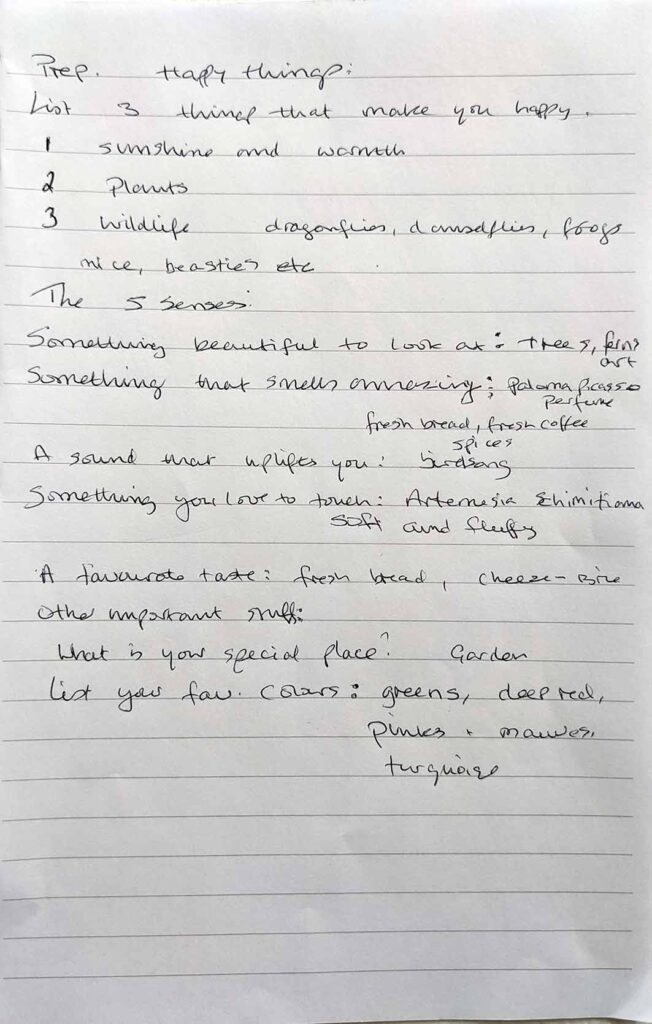 Prep. Happy things:
List 3 things that make you happy.
1 sunshine and warmth
2 Plants
3 Wildlife dragonflies, damselflies, frogs
mice, beasties etc
The 5 senses:
Something beautiful to look at: trees, ferns
art
Something that smells amazing: Paloma Picasso
perfume
fresh bread, fresh coffee
spices
A sound that uplifts you: birdsong
Something you love to touch: Artemesia
soft and fluffy
A favourate taste: fresh bread, cheeze - Brie
Other important stuff:
What is your special place? Garden
List your fav. Colours: greens, deep red,
pinks + mauves,
turquoise